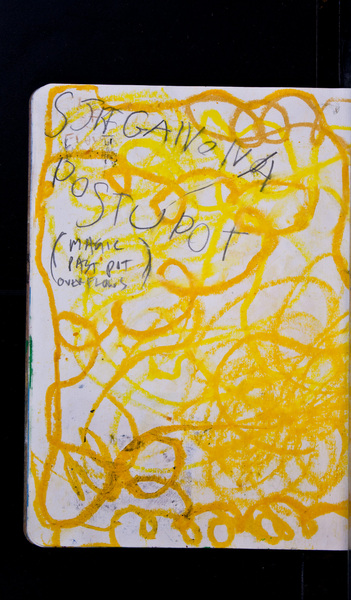 STEGANONA
POSTU POT
(MAGIC
PAST POT
OVERFLOWS)